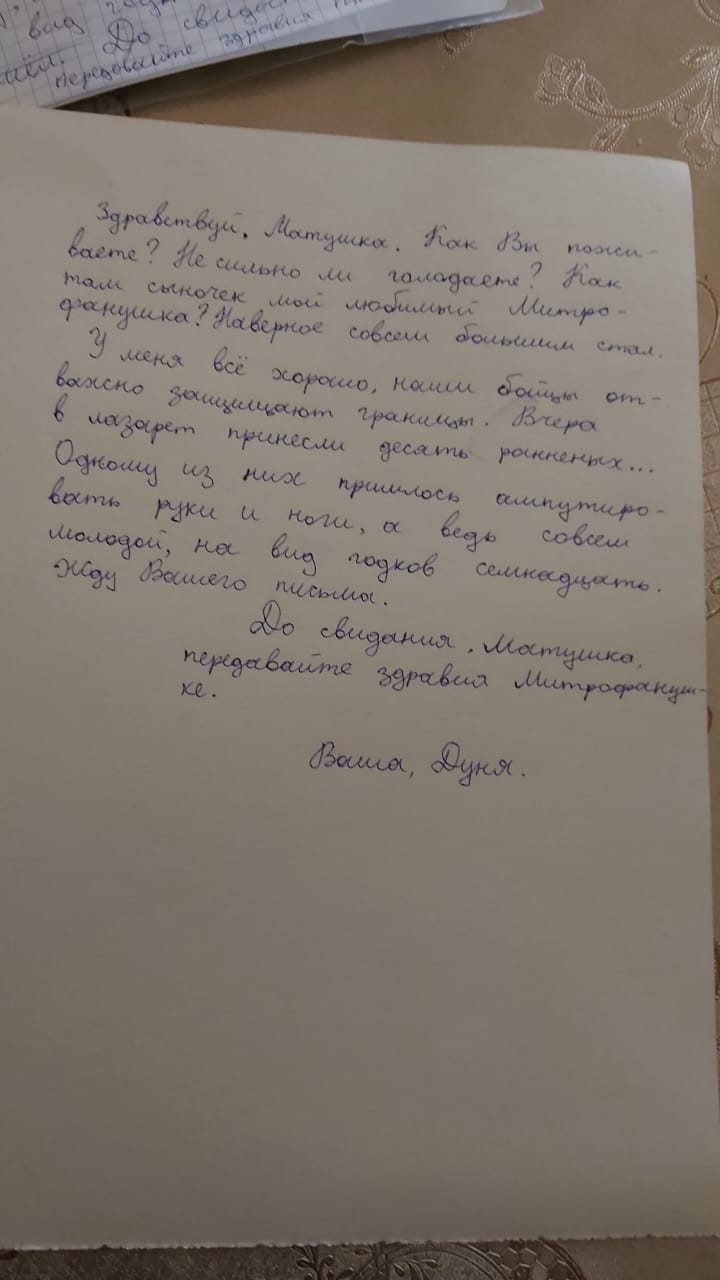 вид годк
До свидос
передавайте здравия
Здравствуй, Матушка. Как Вы пожи-
ваете? Не сильно ли голодаете? Как
там сыночек мой любимый Митро-
фанушка? Наверное совсем большим стал.
У меня всё хорошо, наши бойцы от-
важно защищают границы. Вчера
в лазарет принесли десять раненых...
Одному из них пришлось ампутиро-
вать руки и ноги, а ведь совсем
молодой, на вид годков семнадцать.
Жду Вашего письма.
До свидания, Матушка,
передавайте здравия Митрофануш-
ке.
Ваша, Дуня.